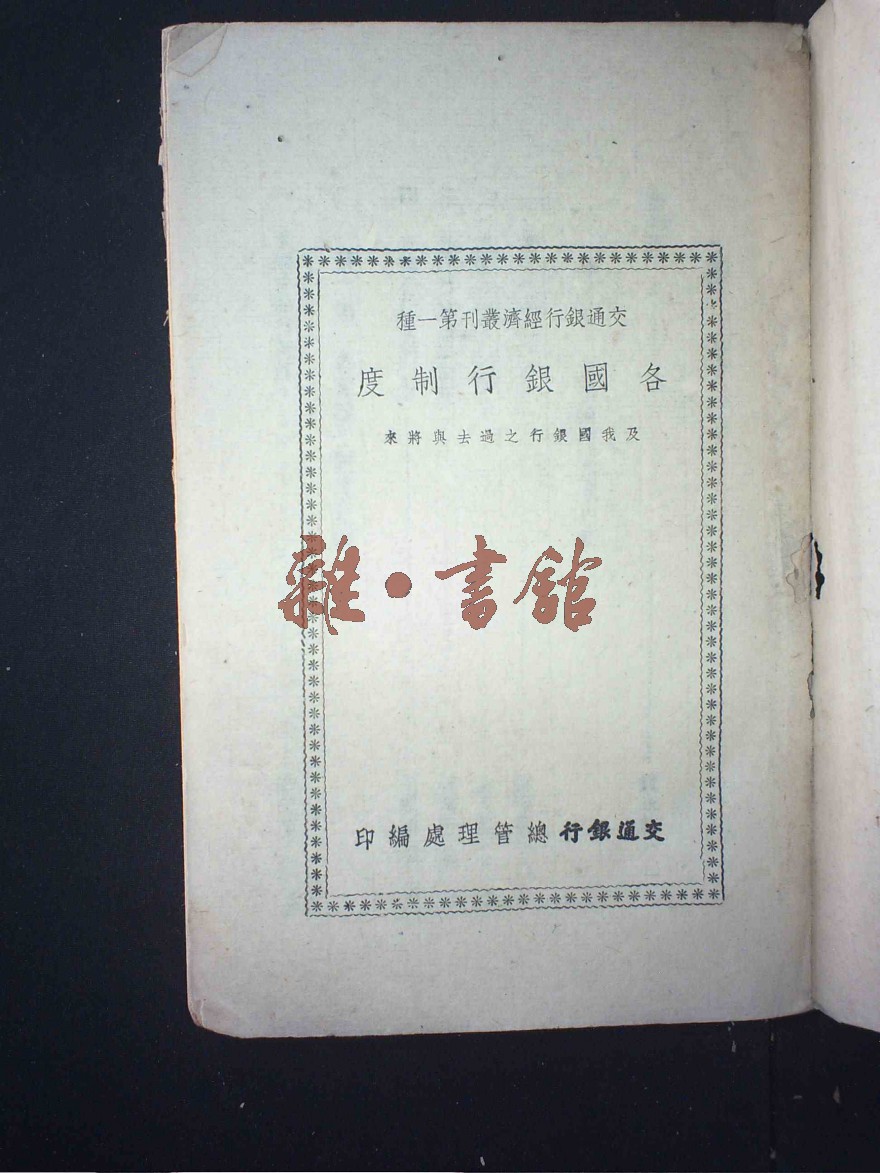 交通銀行經濟叢刊第一種
各國銀行制度
及我國銀行之過去與將來
雜·書館
交通銀行總管理處編印